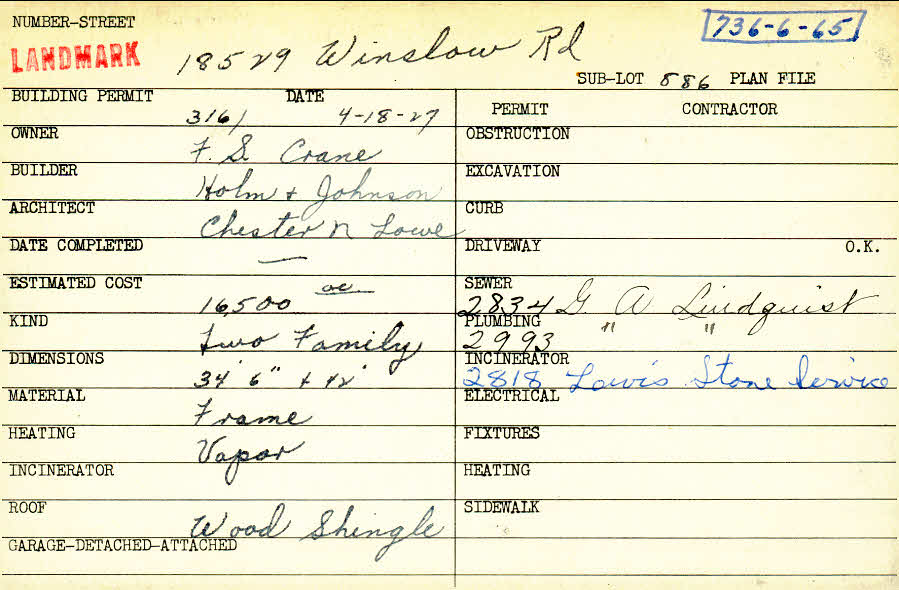 NUMBER-STREET
LANDMARK
18529 Winslow Rd
736-6-65
SUB-LOT 886 PLAN FILE
BUILDING PERMIT 3161 DATE 4-18-27
OWNER F. S. Crane
BUILDER Holm + Johnson
ARCHITECT Chester N Lowe
DATE COMPLETED —
ESTIMATED COST 16,500 00
KIND Two Family
DIMENSIONS 34' 6" + 42'
MATERIAL Frame
HEATING Vapor
INCINERATOR
ROOF Wood Shingle
GARAGE-DETACHED-ATTACHED
PERMIT CONTRACTOR
OBSTRUCTION
EXCAVATION
CURB
DRIVEWAY O.K.
SEWER 2834 G A Lindquist
PLUMBING 2993 " "
INCINERATOR 2818 Lewis Stone Service
ELECTRICAL
FIXTURES
HEATING
SIDEWALK